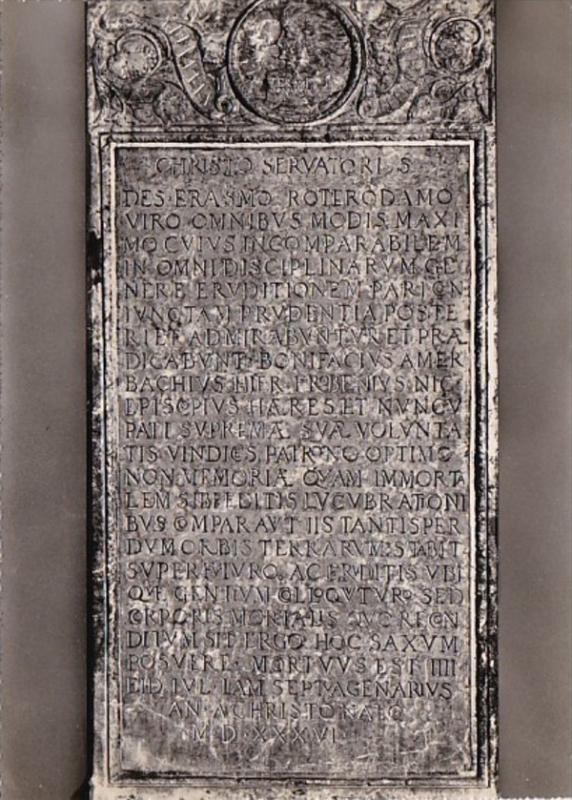 CHRISTO SERVATORI S
DES·ERASMO ROTERODAMO
VIRO OMNIBVS MODIS MAXI
MO CVIVS INCOMPARABILEM
IN OMNI DISCIPLINARVM GE
NERE ERVDITIONEM PARI CON
IVNCTAM PRVDENTIA POSTE
RI ET ADMIRABVNTVR ET PRÆ
DICABVNT BONIFACIVS AMER
BACHIVS HIER·FROBENIVS NIC
EPISCOPIVS HÆRES ET NVNCV
PATI SVPREMÆ SVÆ VOLVNTA
TIS VINDICES PATRONO OPTIMO
NON MEMORIÆ QVAM IMMORTA
LEM SIBI EDITIS LVCVBRATIONI
BVS COMPARAVIT IIS TANTISPER
DVM ORBIS TERRARVM STABIT
SVPERFVTVRO AC ERVDITIS VBI
QVE GENTIVM COLLOQVVTVRO SED
CORPORIS MORTALIS QVO RECON
DITVM SIT ERGO HOC SAXVM
POSVERE MORTVVS EST IIII
EID·IVL·IAM SEPTVAGENARIVS
AN·A CHRISTO NATO
M D XXXVI